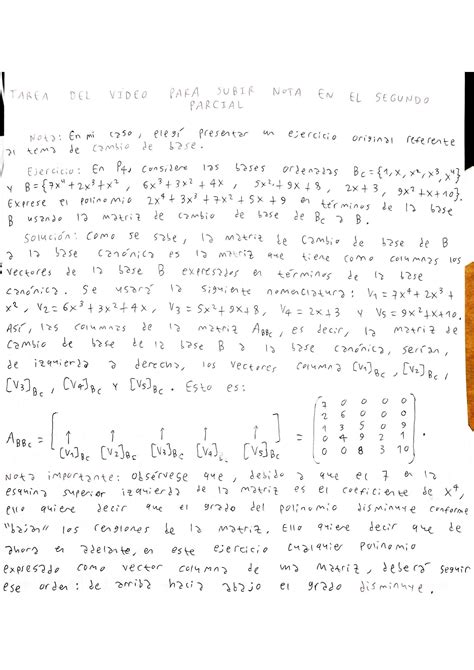 TAREA DEL VIDEO PARA SUBIR NOTA EN EL SEGUNDO
PARCIAL
Nota: En mi caso, elegí presentar un ejercicio original referente
al tema de cambio de base.
Ejercicio: En P4, considere las bases ordenadas Bc={1,x,x²,x³,x⁴}
y B={7x⁴+2x³+x², 6x³+3x²+4x, 5x²+9x+8, 2x+3, 9x²+x+10}.
Exprese el polinomio 2x⁴+3x³+7x²+5x+9 en términos de la base
B usando la matriz de cambio de base de Bc a B.
Solución: Como se sabe, la matriz de cambio de base de B
a la base canónica es la matriz que tiene como columnas los
vectores de la base B expresados en términos de la base
canónica. Se usará la siguiente nomenclatura: V1=7x⁴+2x³+
x², V2=6x³+3x²+4x, V3=5x²+9x+8, V4=2x+3 y V5=9x²+x+10.
Así, las columnas de la matriz A_BBc, es decir, la matriz de
cambio de base de la base B a la base canónica, serían,
de izquierda a derecha, los vectores columna [V1]Bc, [V2]Bc,
[V3]Bc, [V4]Bc y [V5]Bc. Esto es:
A_BBc = [ ↑ ↑ ↑ ↑ ↑ [V1]Bc [V2]Bc [V3]Bc [V4]Bc [V5]Bc ] =
7 0 0 0 0
2 6 0 0 0
1 3 5 0 9
0 4 9 2 1
0 0 8 3 10 .
Nota importante: Obsérvese que, debido a que el 7 en la
esquina superior izquierda de la matriz es el coeficiente de x⁴,
ello quiere decir que el grado del polinomio disminuye conforme
"bajan" los renglones de la matriz. Ello quiere decir que de
ahora en adelante, en este ejercicio cualquier polinomio
expresado como vector columna de una matriz, deberá seguir
ese orden: de arriba hacia abajo el grado disminuye.